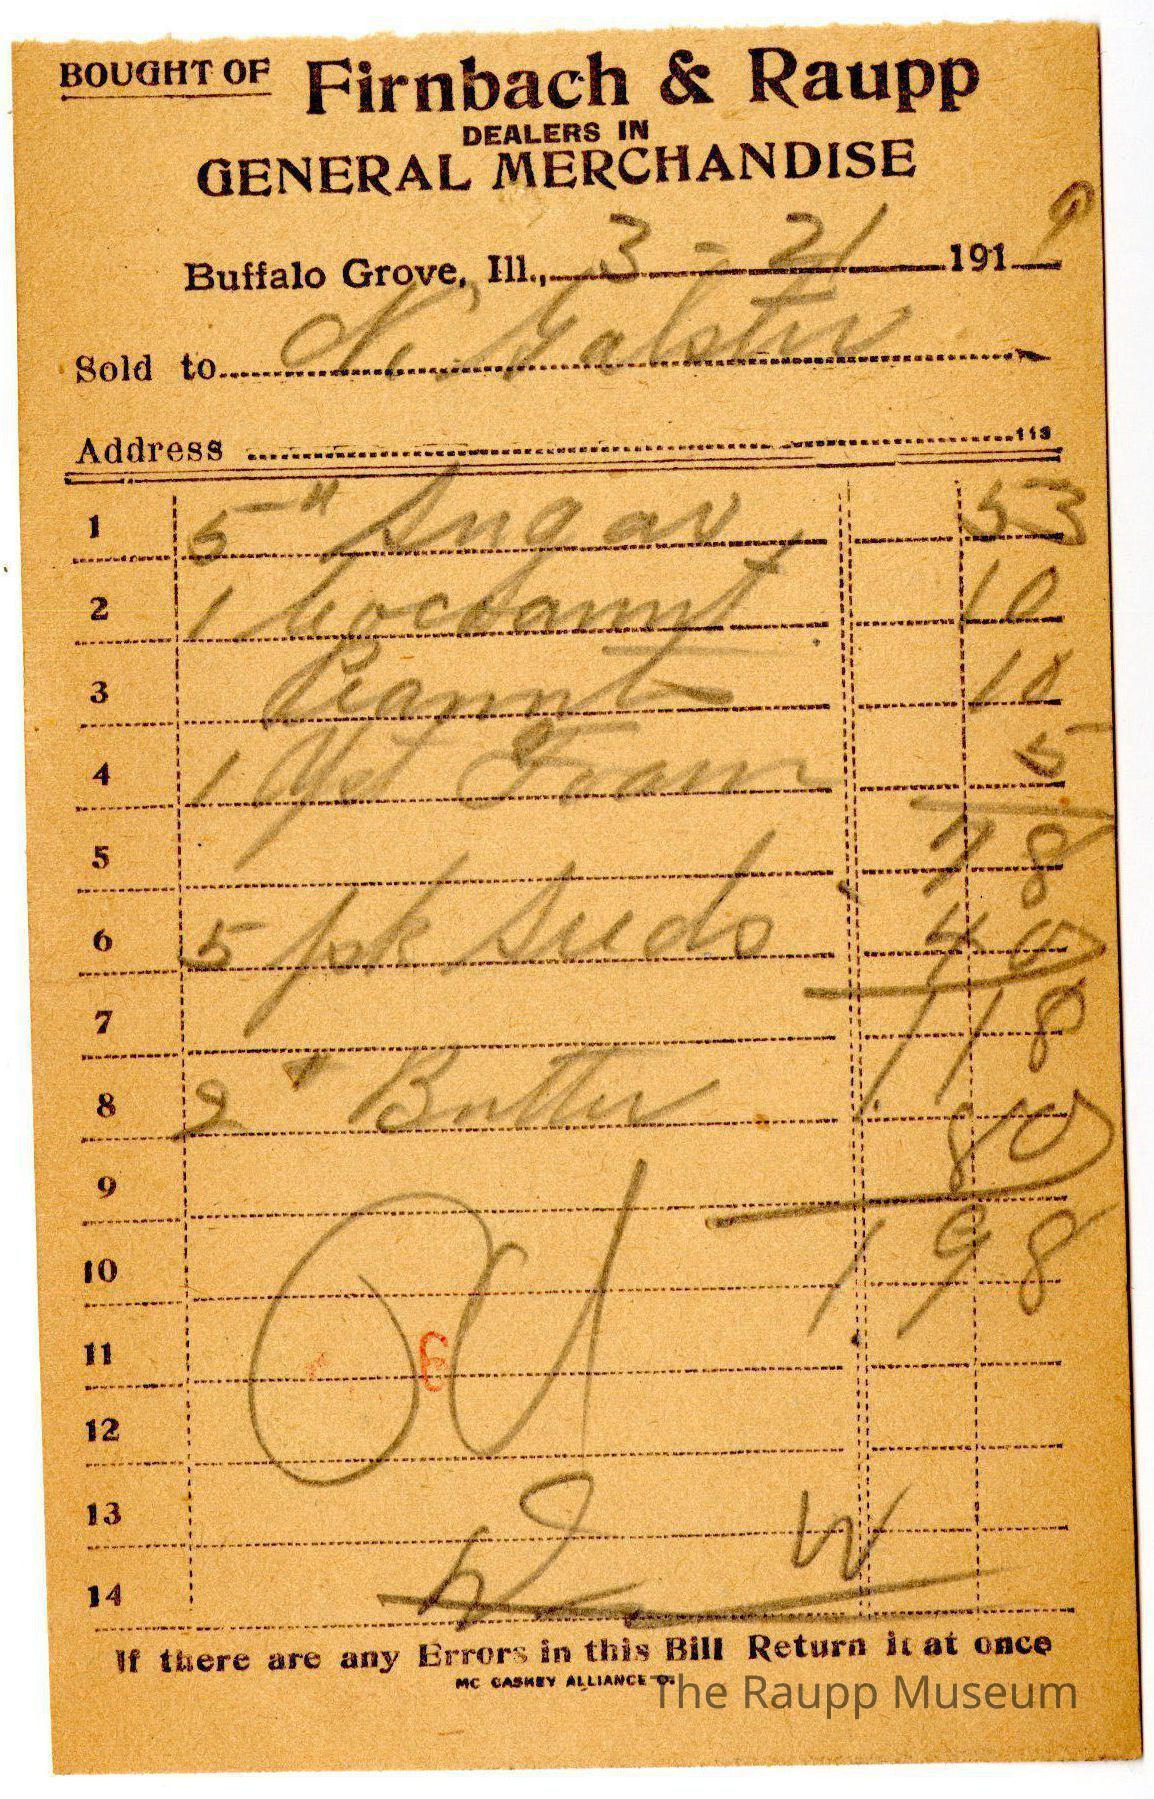 BOUGHT OF Firnbach & Raupp
DEALERS IN
GENERAL MERCHANDISE
Buffalo Grove, Ill., 3 - 21 1919
Sold to N. Galster
Address
113
1 5 # Sugar 53
2 1 Cocoanut 10
3 Peanut 10
4 1 Yst Foam 5
5 78
6 5 pk Seeds 40
7 1 18
8 2 # Butter 80
9
10 1 98
11
12
13 W
14
If there are any Errors in this Bill Return it at once
MC CASKEY ALLIANCE O.
The Raupp Museum